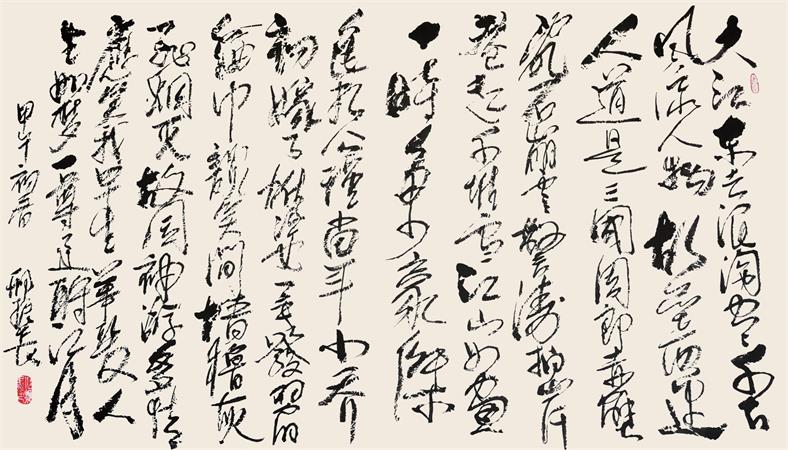 大江东去浪淘尽千古
风流人物故垒西边
人道是三国周郎赤壁
乱石崩云惊涛拍岸
卷起千堆雪江山如画
一时多少豪傑
遥想公瑾当年小乔
初嫁了雄姿英發羽扇
纶巾谈笑间樯橹灰
飞烟灭故国神游多情
应笑我早生华发人
生如梦一尊还酹江月
甲午初春 邢